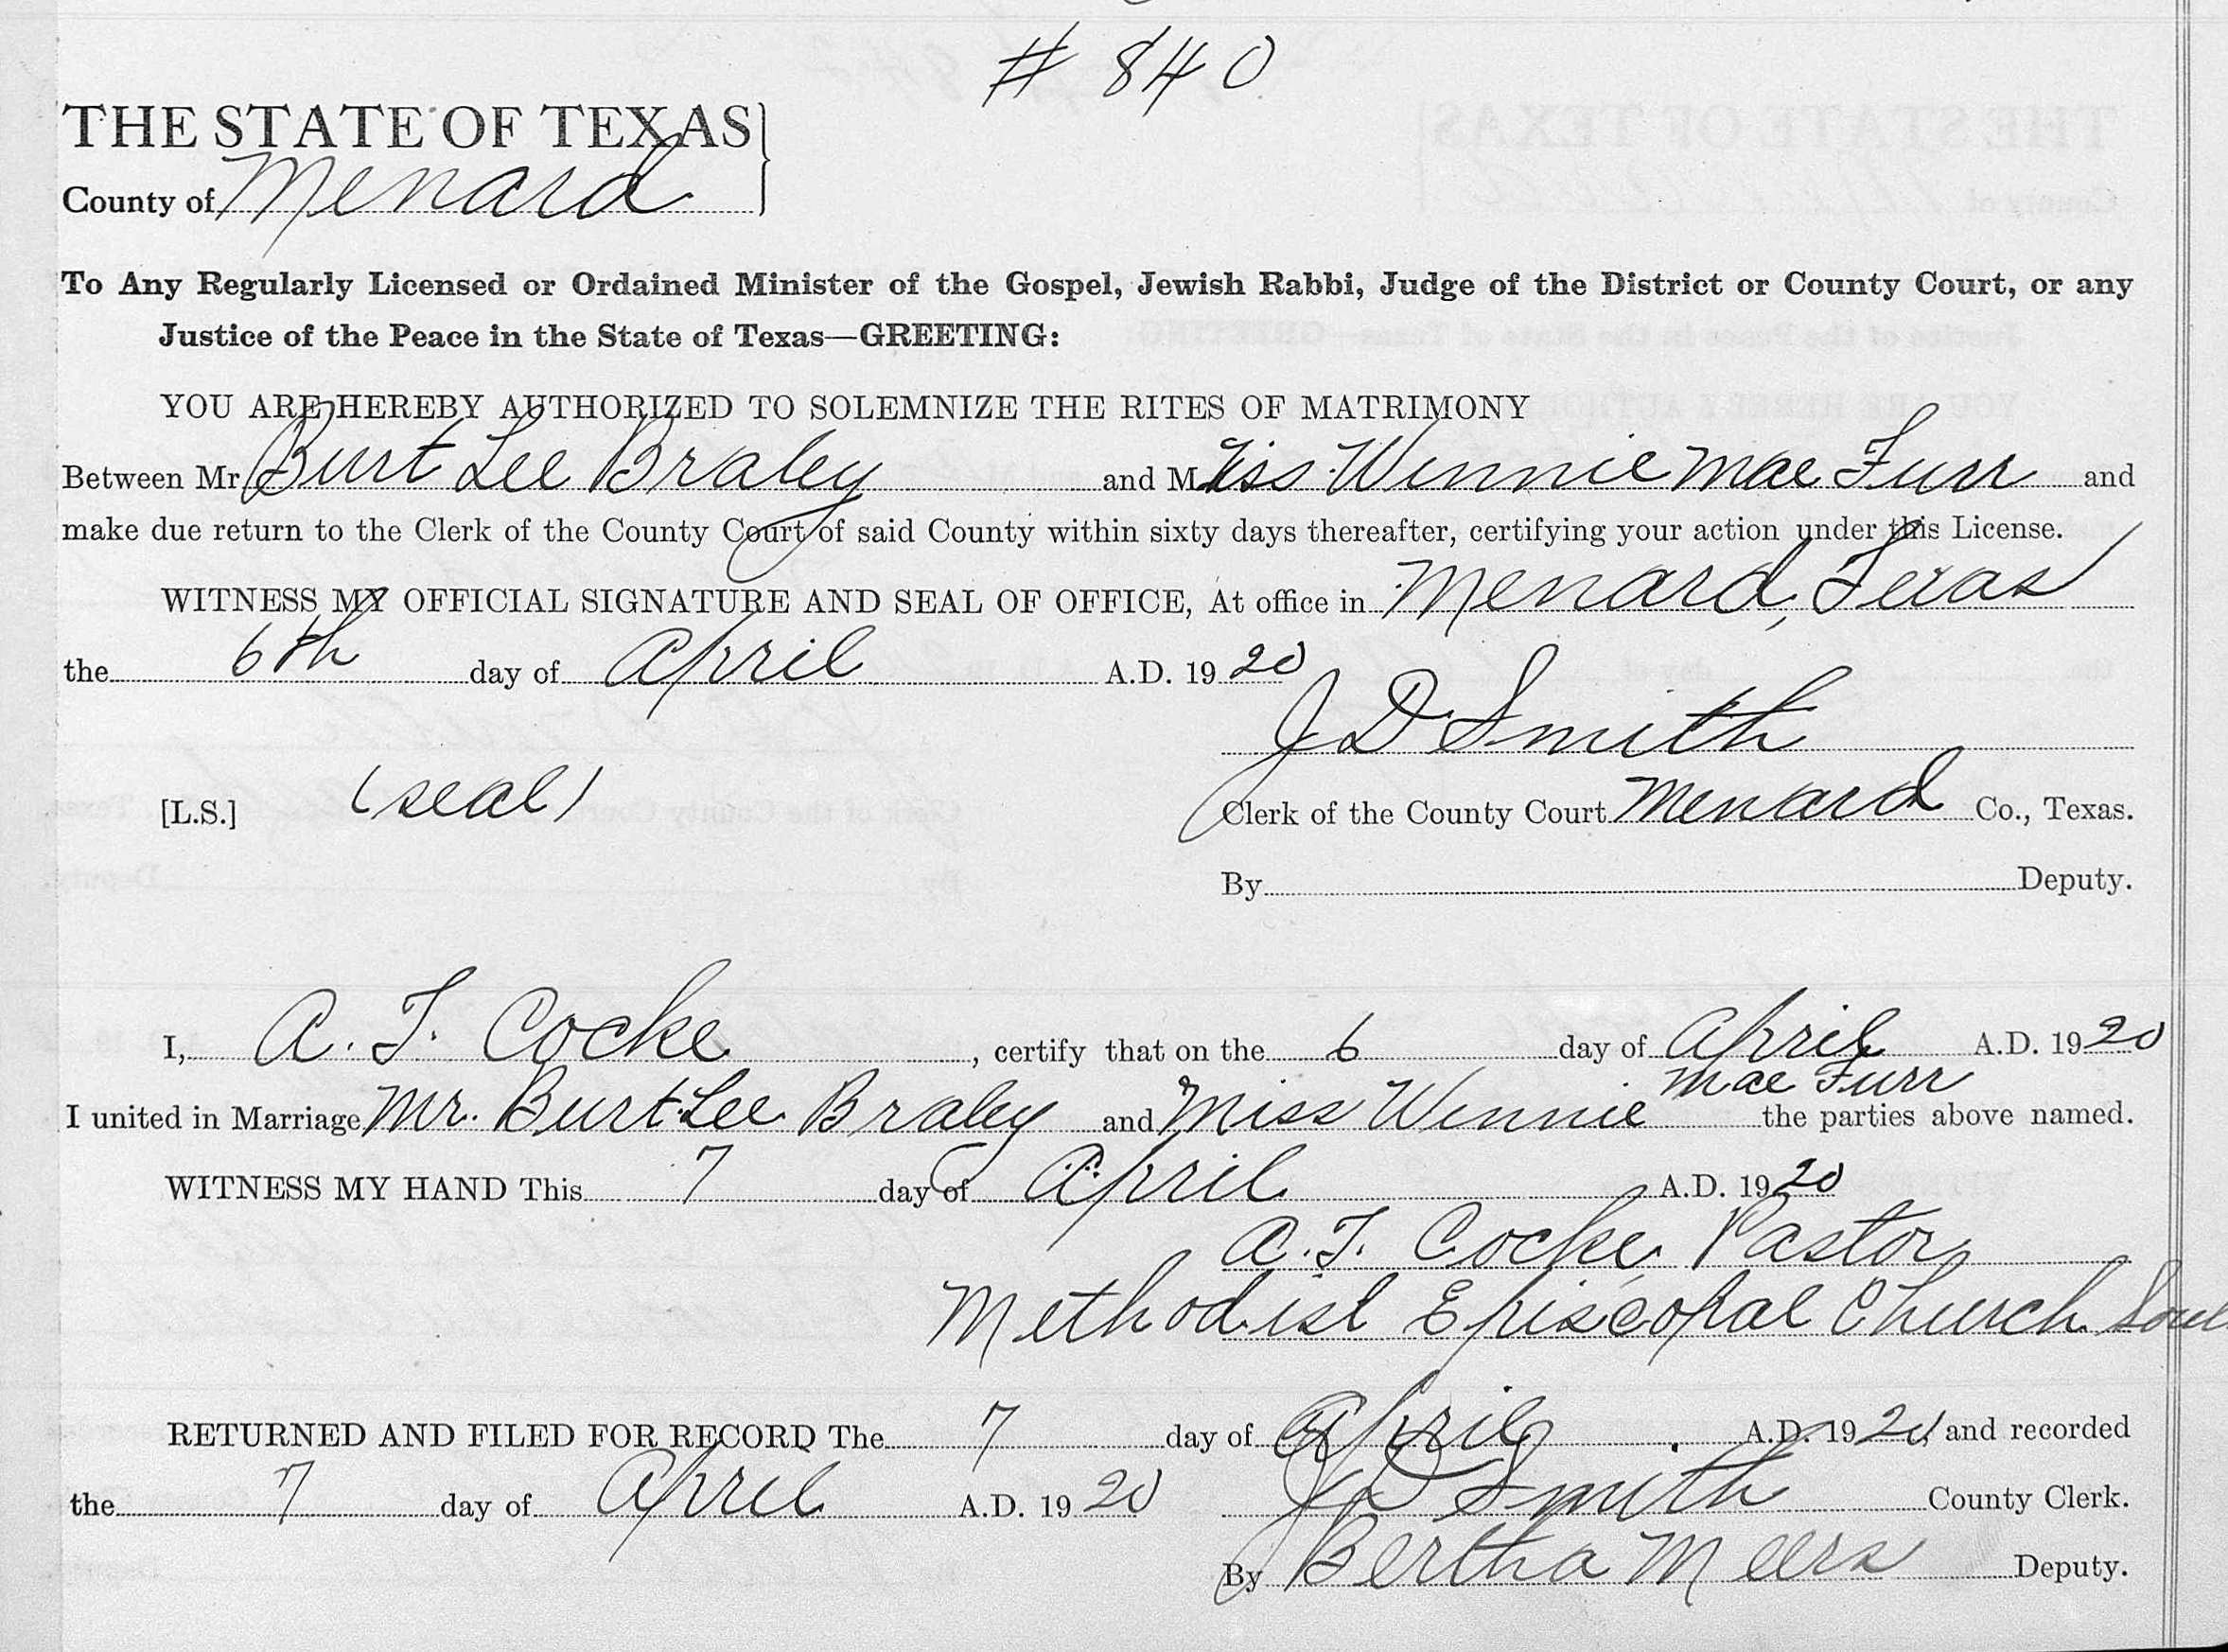 # 840
THE STATE OF TEXAS
County of Menard
To Any Regularly Licensed or Ordained Minister of the Gospel, Jewish Rabbi, Judge of the District or County Court, or any
Justice of the Peace in the State of Texas—GREETING:
YOU ARE HEREBY AUTHORIZED TO SOLEMNIZE THE RITES OF MATRIMONY
Between Mr Burt Lee Braley and Miss Winnie Mae Furr and
make due return to the Clerk of the County Court of said County within sixty days thereafter, certifying your action under this License.
WITNESS MY OFFICIAL SIGNATURE AND SEAL OF OFFICE, At office in Menard, Texas
the 6th day of April A.D. 19 20
J D Smith
[L.S.] (seal) Clerk of the County Court Menard Co., Texas.
By Deputy.
I, A. T. Cocke, certify that on the 6 day of April A.D. 19 20
Mae Furr
I united in Marriage Mr. Burt Lee Braley and Miss Winnie the parties above named.
WITNESS MY HAND This 7 day of April A.D. 19 20
A. T. Cocke, Pastor
Methodist Episcopal Church Sou
RETURNED AND FILED FOR RECORD The 7 day of April A.D. 19 20, and recorded
the 7 day of April A.D. 19 20 J D Smith County Clerk.
By Bertha Meers Deputy.